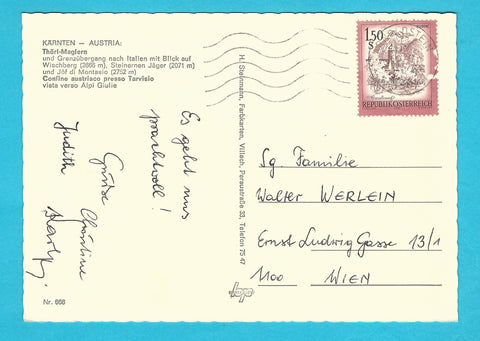 KÄRNTEN — AUSTRIA:
Thörl-Maglern
und Grenzübergang nach Italien mit Blick auf
Wischberg (2666 m), Steinernen Jäger (2071 m)
und Jôf di Montasio (2752 m)
Confine austriaco presso Tarvisio
vista verso Alpi Giulie
Es geht uns
prachtvoll!
Grüße Christine
Judith
Nr. 668
H. Steinmann, Farbkarten, Villach, Peraustraße 33, Telefon 75 47
1.50
S
REPUBLIK ÖSTERREICH
Sg. Familie
Walter WERLEIN
Ernst Ludwig Gasse 13/1
1100 WIEN